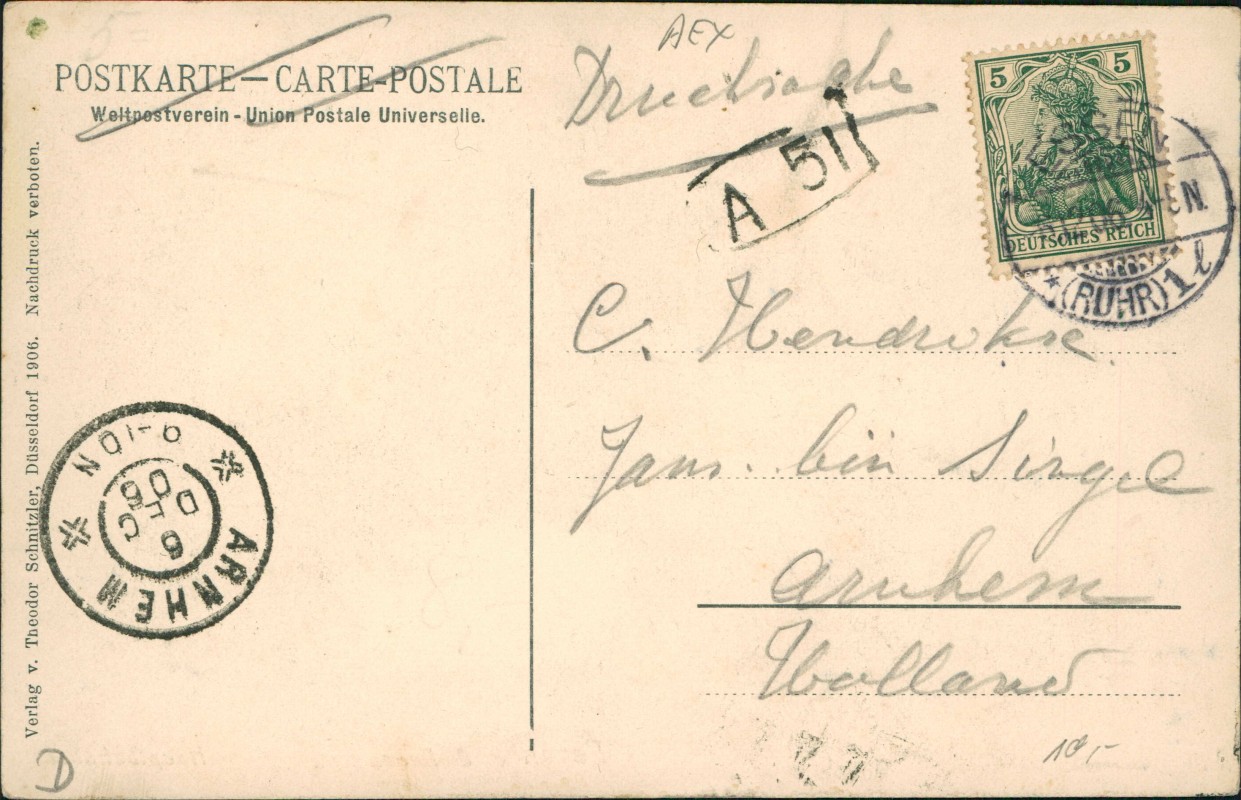 POSTKARTE—CARTE-POSTALE
Weltpostverein - Union Postale Universelle.
AEX
Drucksache
A 51
5 5
DEUTSCHES REICH
ESSEN
(RUHR) 1 l
C. Hendrikse
Jans. bin Singel
Arnhem
Holland
Verlag v. Theodor Schnitzler, Düsseldorf 1906. Nachdruck verboten.
ARNHEM
6
DEC
06
D
10,-